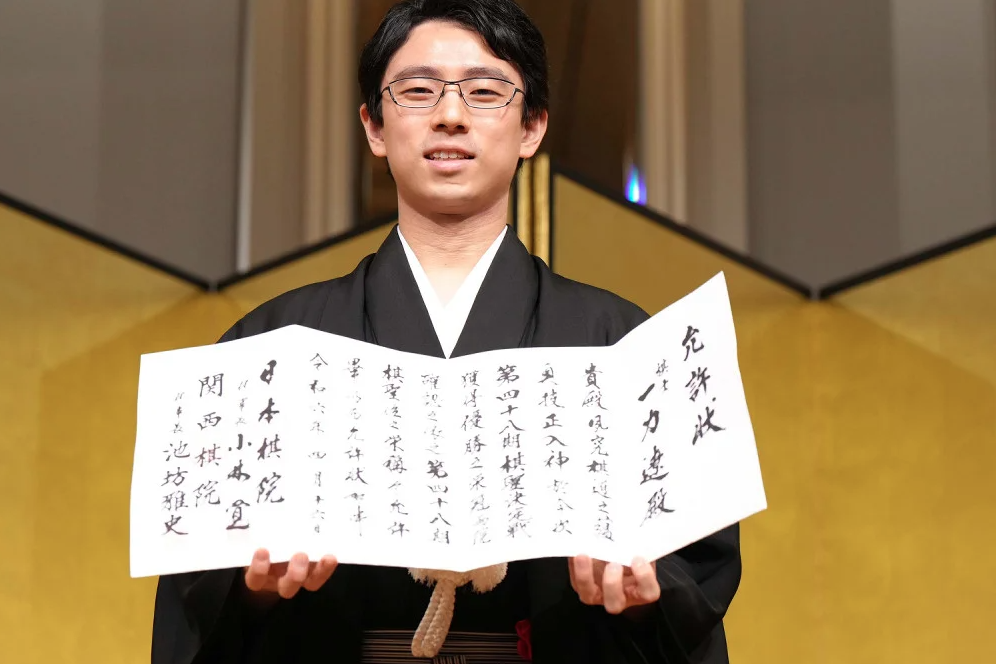 允許状
棋士
一力遼殿
貴殿夙究棋道之薀
奥技正入神於今次
第四十八期棋聖決戦
獲得優勝之栄冠
確認之
第四十八期
棋聖位之栄称
允許
畢
允許状如件
令和六年四月十六日
日本棋院
理事長
小林覚
関西棋院
理事長
池坊雅史